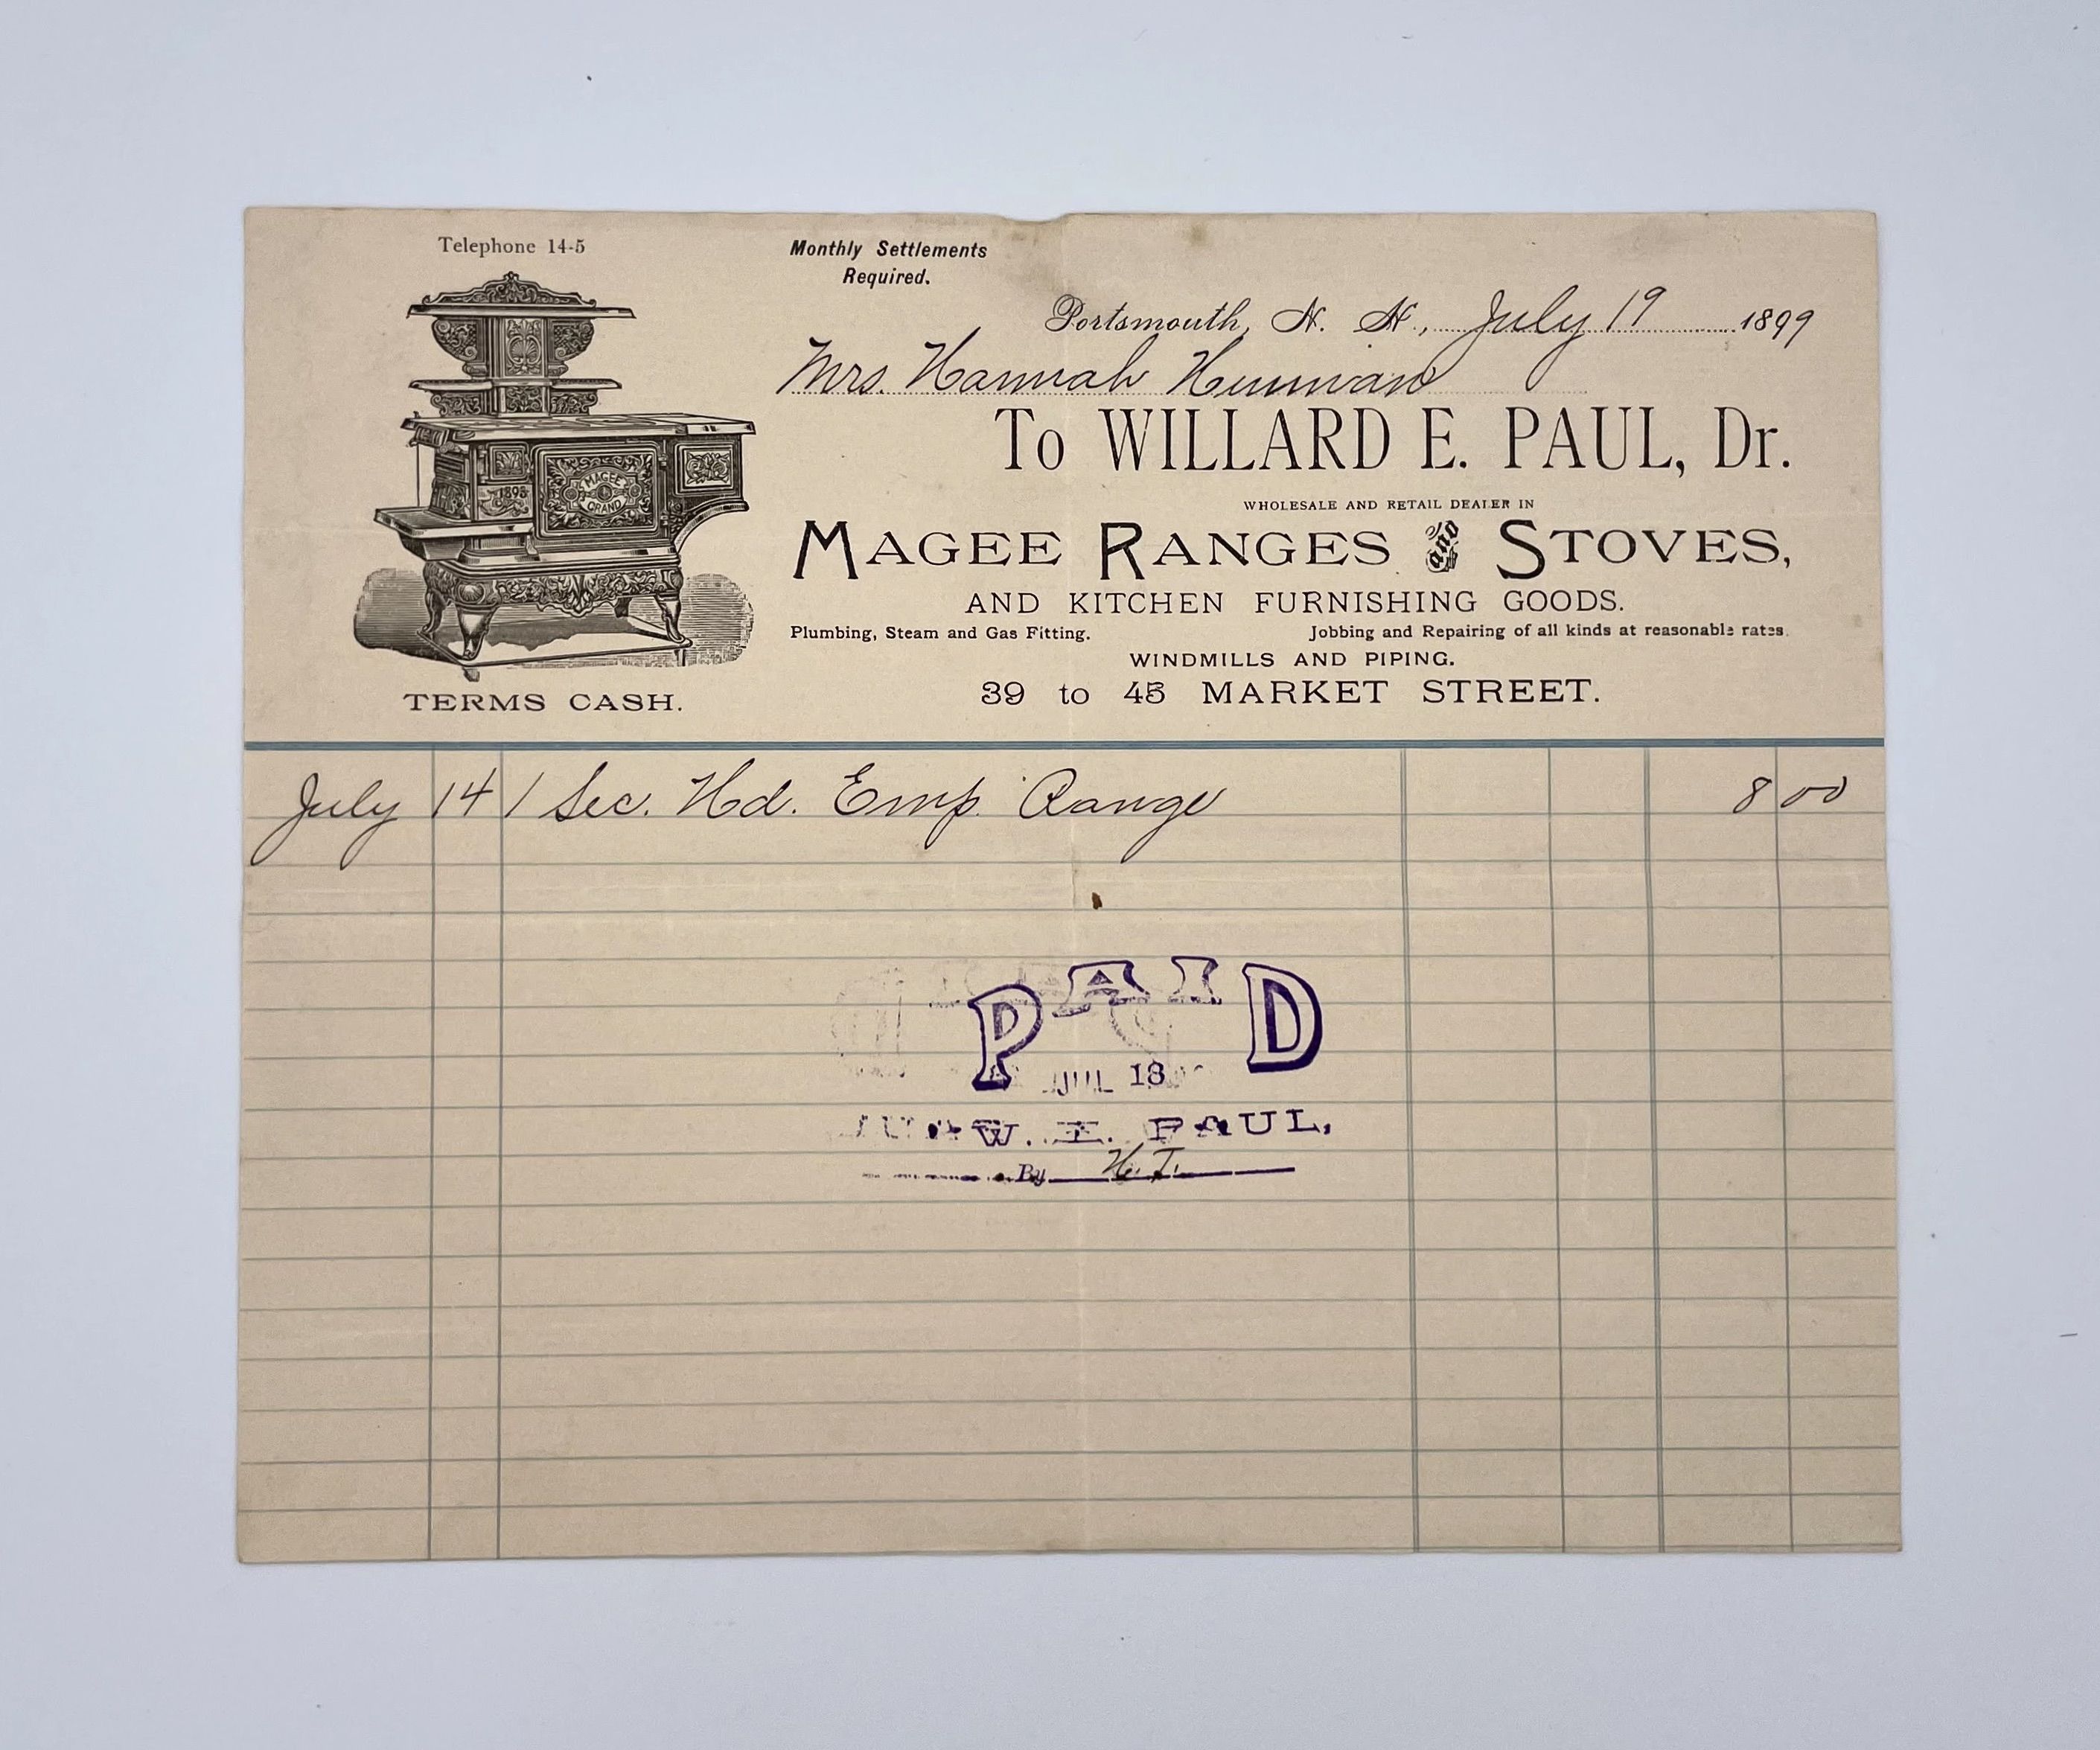 Telephone 14-5
Monthly Settlements
Required.
Portsmouth, N. H., July 19 1899
Mrs. Hannah
To WILLARD E. PAUL, Dr.
WHOLESALE AND RETAIL DEALER IN
MAGEE RANGES and STOVES,
AND KITCHEN FURNISHING GOODS.
Plumbing, Steam and Gas Fitting. Jobbing and Repairing of all kinds at reasonable rates.
WINDMILLS AND PIPING.
39 to 45 MARKET STREET.
MAGEE
GRAND
1895
TERMS CASH.
July 14 1 Sec. Hd. Emp. Range 8 00
PAID
JUL 18
W. E. PAUL,
By H. T.